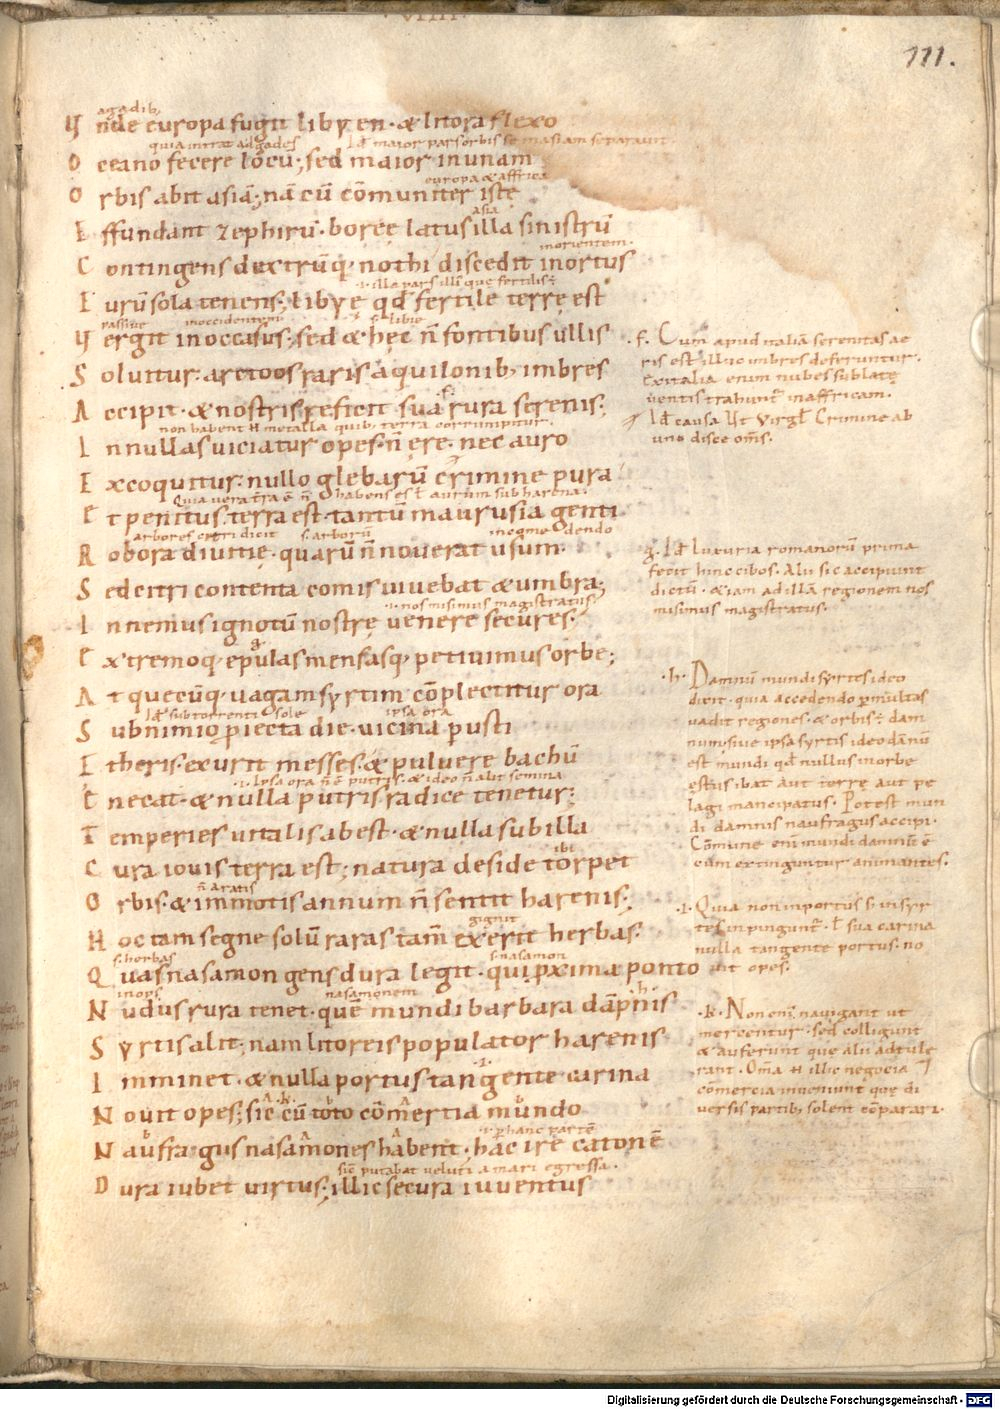 VIIII.
111.
agadib;
Vnde europa fugit libyen. & litora flexo
quia intrat ad gades Id maior pars orbis se in asiam separauit
Oceano fecere locū; sed maior in unam
europa & affrica
Orbis abit asiā; nā cū cōmuniter iste
asia
Effundant zephirū. boreę latus illa sinistrū
in orientem.
Contingens dextrūq; nothi discedit in ortus
.i. illa pars illi que fertilis ÷
Eurū sola tenens; libyę qd fertile terrę est
passiue in occidentem s. libie
Vergit in occasus; sed & hęc n̄ fontibus ullis
Soluitur: arctoos raris aquilonib; imbres
.f.
Accipit. & nostris reficit sua rura serenis;
non habent metalla quib; terra corrumpitur.
In nullas uiciatur opes. n̄ ęre. nec auro
Excoquitur: nullo glebarū crimine pura
Quia uera terra ē n̄ habens es ł aurum sub harena.
Et penitus terra est. tantū maurusia genti
arbores citri dicit s. arborū in comedendo
Robora diuitię. quarū n̄ nouerat usum.
Sed citri contenta comis uiuebat & umbra;
.i. nos misimus magistratus.
In nemus ignotū nostrę uenere secures.
.g.
Extremoq; epulas mensasq; petiuimus orbe;
At quecūq; uagam syrtim cōplectitur ora
Id sub torrenti sole ipsa ora
Sub nimio proiecta die. uicina perusti
Etheris. exurit messes. & puluere bachū
.i. ipsa ora n̄ ē putris. & ideo n̄ alit semina
Enecat. & nulla putris radice tenetur;
Temperies uitalis abest. & nulla sub illa
ibi
Cura iouis terra est; natura deside torpet
n̄ aratis
Orbis. & immotis annum n̄ sentit harenis;
gignit
Hoc tam segne solū raras tam̄ exerit herbas.
s. herbas s. nasamon
Quas nasamon gens dura legit. qui pxima ponto
inops nasamonem .h.
Nudus rura tenet. quē mundi barbara dāpnis
Syrtis alit; nam litoreis populator harenis
.i.
Imminet. & nulla portus tangente carina
.k.
Nouit opes; sic cū toto cōmertia mundo
.i. p hanc partē
Naufragus nasamones habent. hac ire catonē
sic putabat uelut a mari egressa.
Dura iubet uirtus; illic secura iuuentus
.f. Cum apud italiā serenitas ae
ris est illuc imbres deferuntur.
Ex italia enim nubes sublatę
uentis trahunt in affricam.
Id causa Ut Virgl Crimine ab
uno disce oms.
.g. Id luxuria romanorū prima
fecit hinc cibos. Alii sic accipiunt
dictū. etiam ad illā regionem nos
misimus magistratus.
.h. Damnū mundi syrtes ideo
dicit. quia accedendo p multas
uadit regiones. & orbis ÷ dam
num. siue ipsa syrtis ideo dānū
est mundi qd nullus in orbe
ęstus ibat aut terrę aut pe
lagi mancipatus. Potest mun
di damnis naufragus accipi.
Cōmune enī mundi damnū ē
cum extinguntur animantes.
.i. Quia non in portus s; in syr
tes inpingunt. ł sua carina
nulla tangente portus. no
uit opes.
.k. Non enī nauigant ut
mercentur. sed colligunt
& auferunt que alii adtule
rant. Om̄a illic negocia
cōmercia inueniunt quę di
uersis partib; solent cōparari.
Digitalisierung gefördert durch die Deutsche Forschungsgemeinschaft - DFG